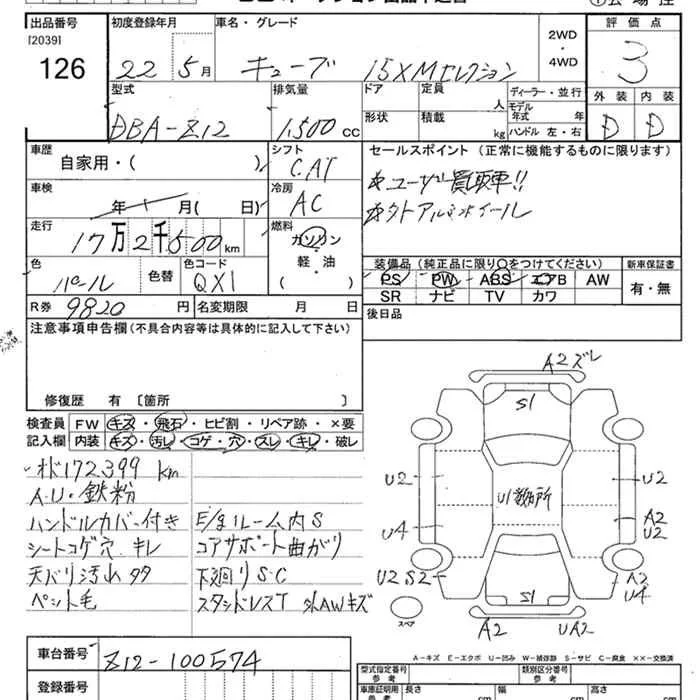 出品番号 初度登録年月 車名・グレード 評価点
[2039]
126 22 5月 キューブ 15XMセレクション 2WD・4WD 3
型式 排気量 ドア 定員 人 ディーラー・並行 外装 内装
DBA-Z12 1,500cc 形状 積載 kg モデル年式 年 ハンドル 左・右 D D
車歴 自家用・( ) シフト CAT セールスポイント (正常に機能するものに限ります)
車検 年 月( 日) 冷房 AC ユーザー買取車!!
走行 17万2千500km 燃料 ガソリン・軽・油( ) 社外アルミホイール
色 パール 色替 色コード QX1 装備品(純正品に限り○をつけてください) 新車保証書
PS PW ABS エアB AW 有・無
SR ナビ TV カワ
R券 9820円 名変期限 月 日 後日品
注意事項申告欄(不具合内容等は具体的に記入して下さい)
修復歴 有 〔箇所 〕
検査員記入欄 FW キズ・飛石・ヒビ割・リペア跡・×要
内装 キズ・汚レ・コゲ・穴・スレ・キレ・破レ
172,399km
A・U・鉄粉
ハンドルカバー付き E/gルーム内S
シートコゲ穴 キレ コアサポート曲がり
天バリ汚れ タタ 下廻りS・C
ペット毛 スタッドレスT 外AWキズ
A2ズレ
S1
U2 U2
U1数ヶ所
U4 A2 U2
U2 S2 A2 U4
S1
スペア A2 UA2
A-キズ E-エクボ U-凹み W-補修跡 S-サビ C-腐食 ××-交換済
車台番号 Z12-100574
型式指定番号 参考 類別区分番号 参考
登録番号 車庫証明用 参考 長さ cm 幅 cm 高さ cm